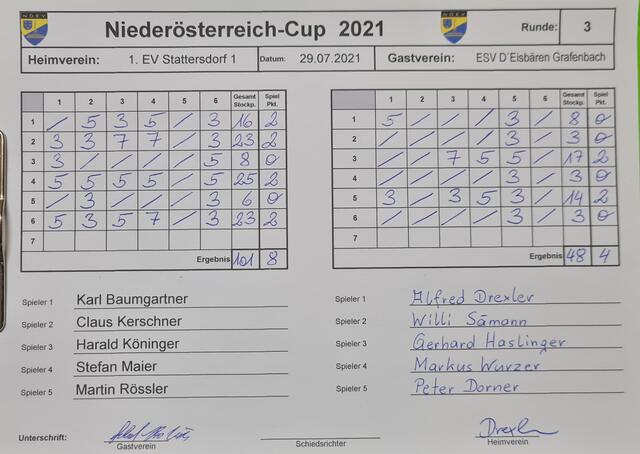 NÖEV NÖEV
Niederösterreich-Cup 2021 Runde: 3
Heimverein: 1. EV Stattersdorf 1 Datum: 29.07.2021 Gastverein: ESV D´Eisbären Grafenbach
1 2 3 4 5 6 Gesamt Stockp. Spiel Pkt. 1 2 3 4 5 6 Gesamt Stockp. Spiel Pkt.
1 / 5 3 5 / 3 16 2 1 5 / / / 3 / 8 0
2 3 3 7 7 / 3 23 2 2 / / / / 3 / 3 0
3 3 / / / / 5 8 0 3 / / 7 5 5 / 17 2
4 5 5 5 5 / 5 25 2 4 / / / / 3 / 3 0
5 / 3 / / / 3 6 0 5 3 / 3 5 3 / 14 2
6 5 3 5 7 / 3 23 2 6 / / / / 3 / 3 0
7 7
Ergebnis 101 8 Ergebnis 48 4
Spieler 1 Karl Baumgartner Spieler 1 Alfred Drexler
Spieler 2 Claus Kerschner Spieler 2 Willi Sämann
Spieler 3 Harald Köninger Spieler 3 Gerhard Haslinger
Spieler 4 Stefan Maier Spieler 4 Markus Wurzer
Spieler 5 Martin Rössler Spieler 5 Peter Dorner
Unterschrift: Drexler
Gastverein Schiedsrichter Heimverein